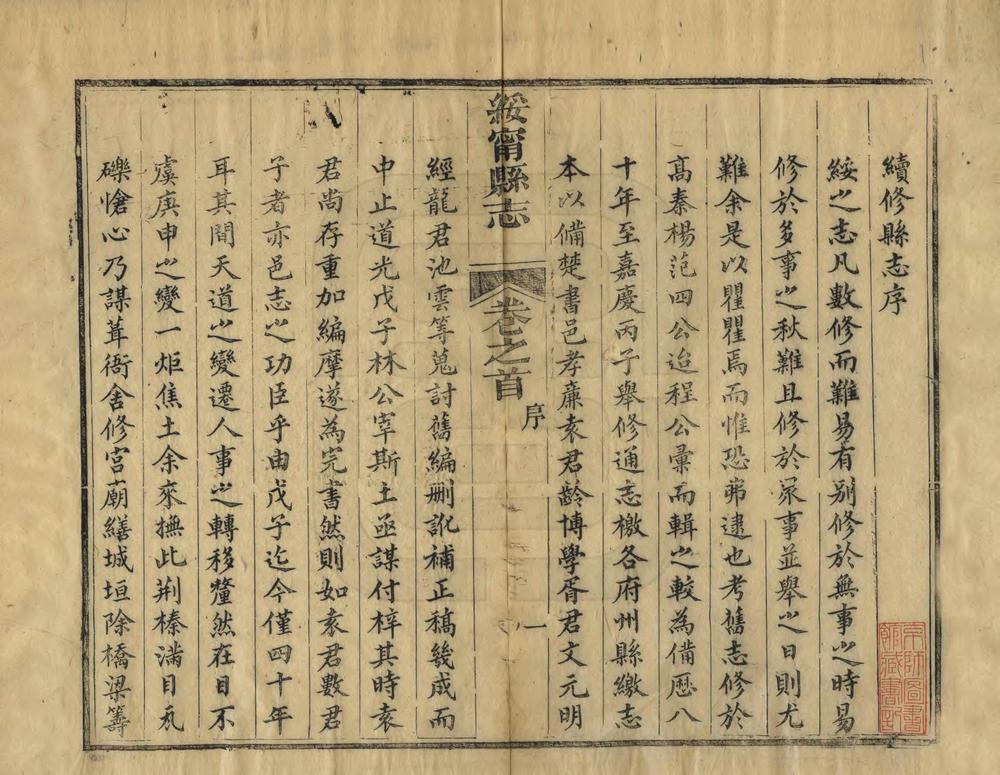 續修縣志序
綏之志凡數修而難易有别修於無事之時易
修於多事之秋難且修於衆事並舉之日則尤
難余是以瞿瞿焉而惟恐弗逮也考舊志修於
髙秦楊范四公迨程公彙而輯之較為備厯八
十年至嘉慶丙子舉修通志檄各府州縣繳志
本以備楚書邑孝廉袁君齡博學胥君文元明
綏甯縣志
卷之首
序
一
經龍君池雲等蒐討舊編刪訛補正稿幾成而
中止道光戊子林公宰斯土亟謀付梓其時袁
君尚存重加編摩遂為完書然則如袁君數君
子者亦邑志之功臣乎由戊子迄今僅四十年
耳其間天道之變遷人事之轉移釐然在目不
虞庚申之變一炬焦土余來撫此荆榛滿目瓦
礫愴心乃謀葺衙舍修宮廟繕城垣除橋梁籌